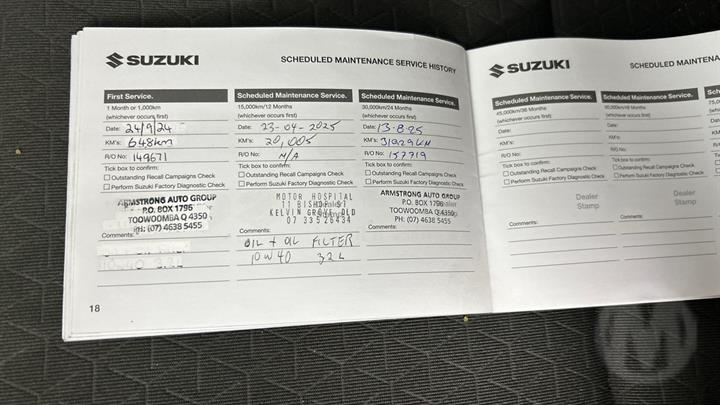 SUZUKI
SCHEDULED MAINTENANCE SERVICE HISTORY
First Service.
1 Month or 1,000km
(whichever occurs first)
Date: 24/9/24
KM's: 648km
R/O No: 149671
Tick box to confirm:
Outstanding Recall Campaigns Check
Perform Suzuki Factory Diagnostic Check
ARMSTRONG AUTO GROUP
P.O. BOX 1796
TOOWOOMBA Q 4350
PH: (07) 4638 5455
Comments:
Scheduled Maintenance Service.
15,000km/12 Months
(whichever occurs first)
Date: 23-04-2025
KM's: 20,005
R/O No: N/A
Tick box to confirm:
Outstanding Recall Campaigns Check
Perform Suzuki Factory Diagnostic Check
MOTOR HOSPITAL
11 BISHOP ST
KELVIN GROVE QLD
07 33526434
Comments:
OIL + OIL FILTER
10W40 3.2L
Scheduled Maintenance Service.
30,000km/24 Months
(whichever occurs first)
Date: 13.8.25
KM's:
R/O No: 157719
Tick box to confirm:
Outstanding Recall Campaigns Check
Perform Suzuki Factory Diagnostic Check
ARMSTRONG AUTO GROUP
P.O. BOX 1796
TOOWOOMBA Q 4350
PH: (07) 4638 5455
Comments:
18
SUZUKI
SCHEDULED MAINTENAN
Scheduled Maintenance Service.
45,000km/36 Months
(whichever occurs first)
Date:
KM's:
R/O No:
Tick box to confirm:
Outstanding Recall Campaigns Check
Perform Suzuki Factory Diagnostic Check
Dealer
Stamp
Comments:
Scheduled Maintenance Service.
60,000km/48 Months
(whichever occurs first)
Date:
KM's:
R/O No:
Tick box to confirm:
Outstanding Recall Campaigns Check
Perform Suzuki Factory Diagnostic Check
Dealer
Stamp
Comments: